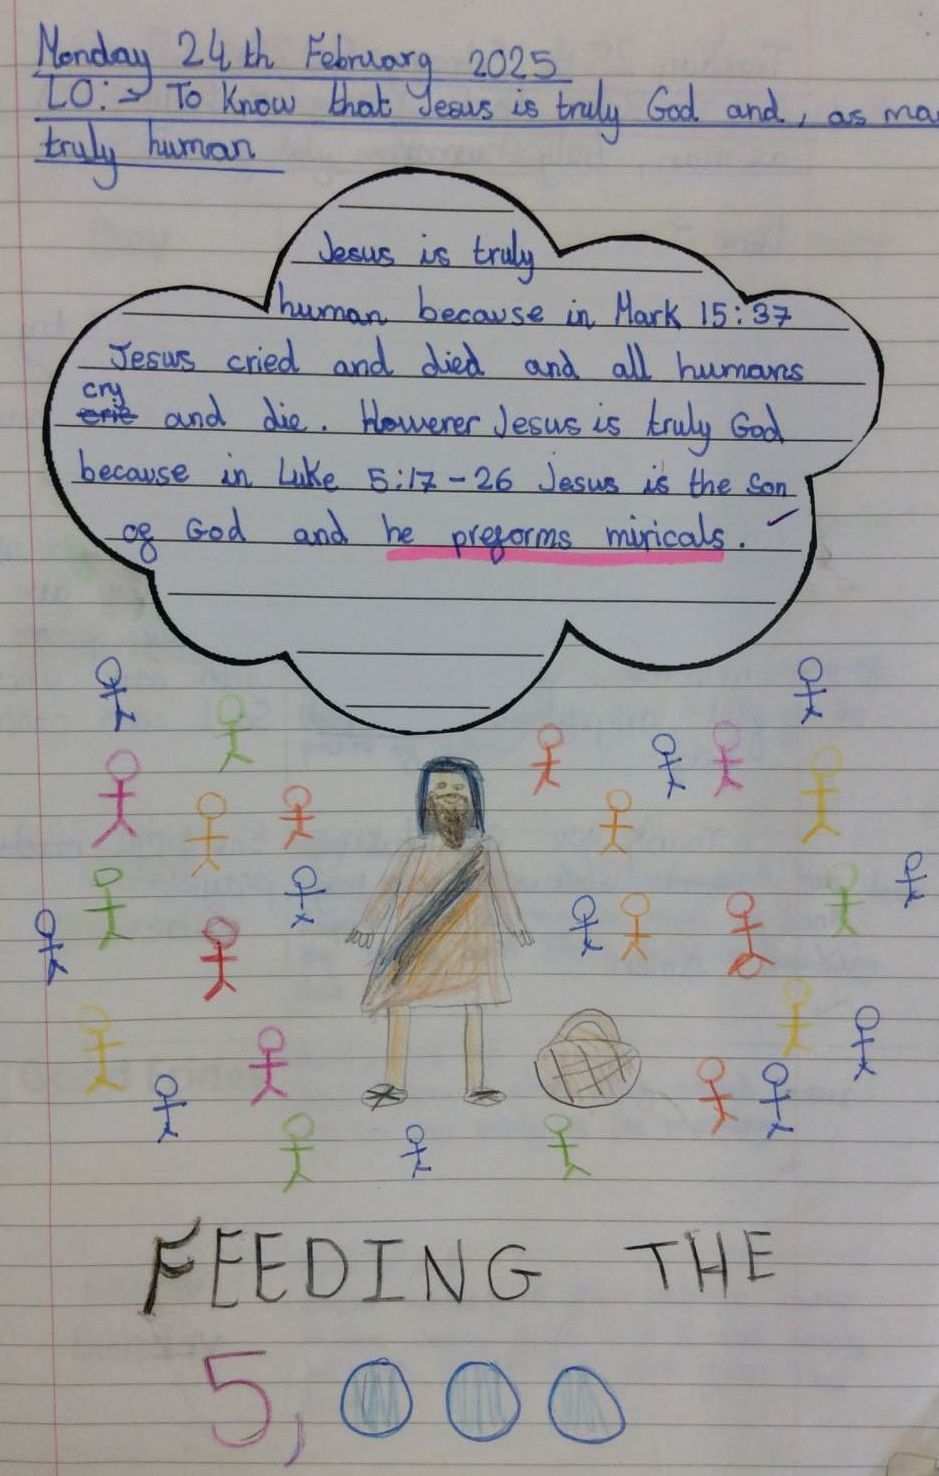 Monday 24th February 2025
LO:→ To Know that Jesus is truly God and, as ma
truly human
Jesus is truly
human because in Mark 15:37
Jesus cried and died and all humans
cry
crie and die. However Jesus is truly God
because in Luke 5:17-26 Jesus is the Son
of God and he preforms miricals.
FEEDING THE
5,000